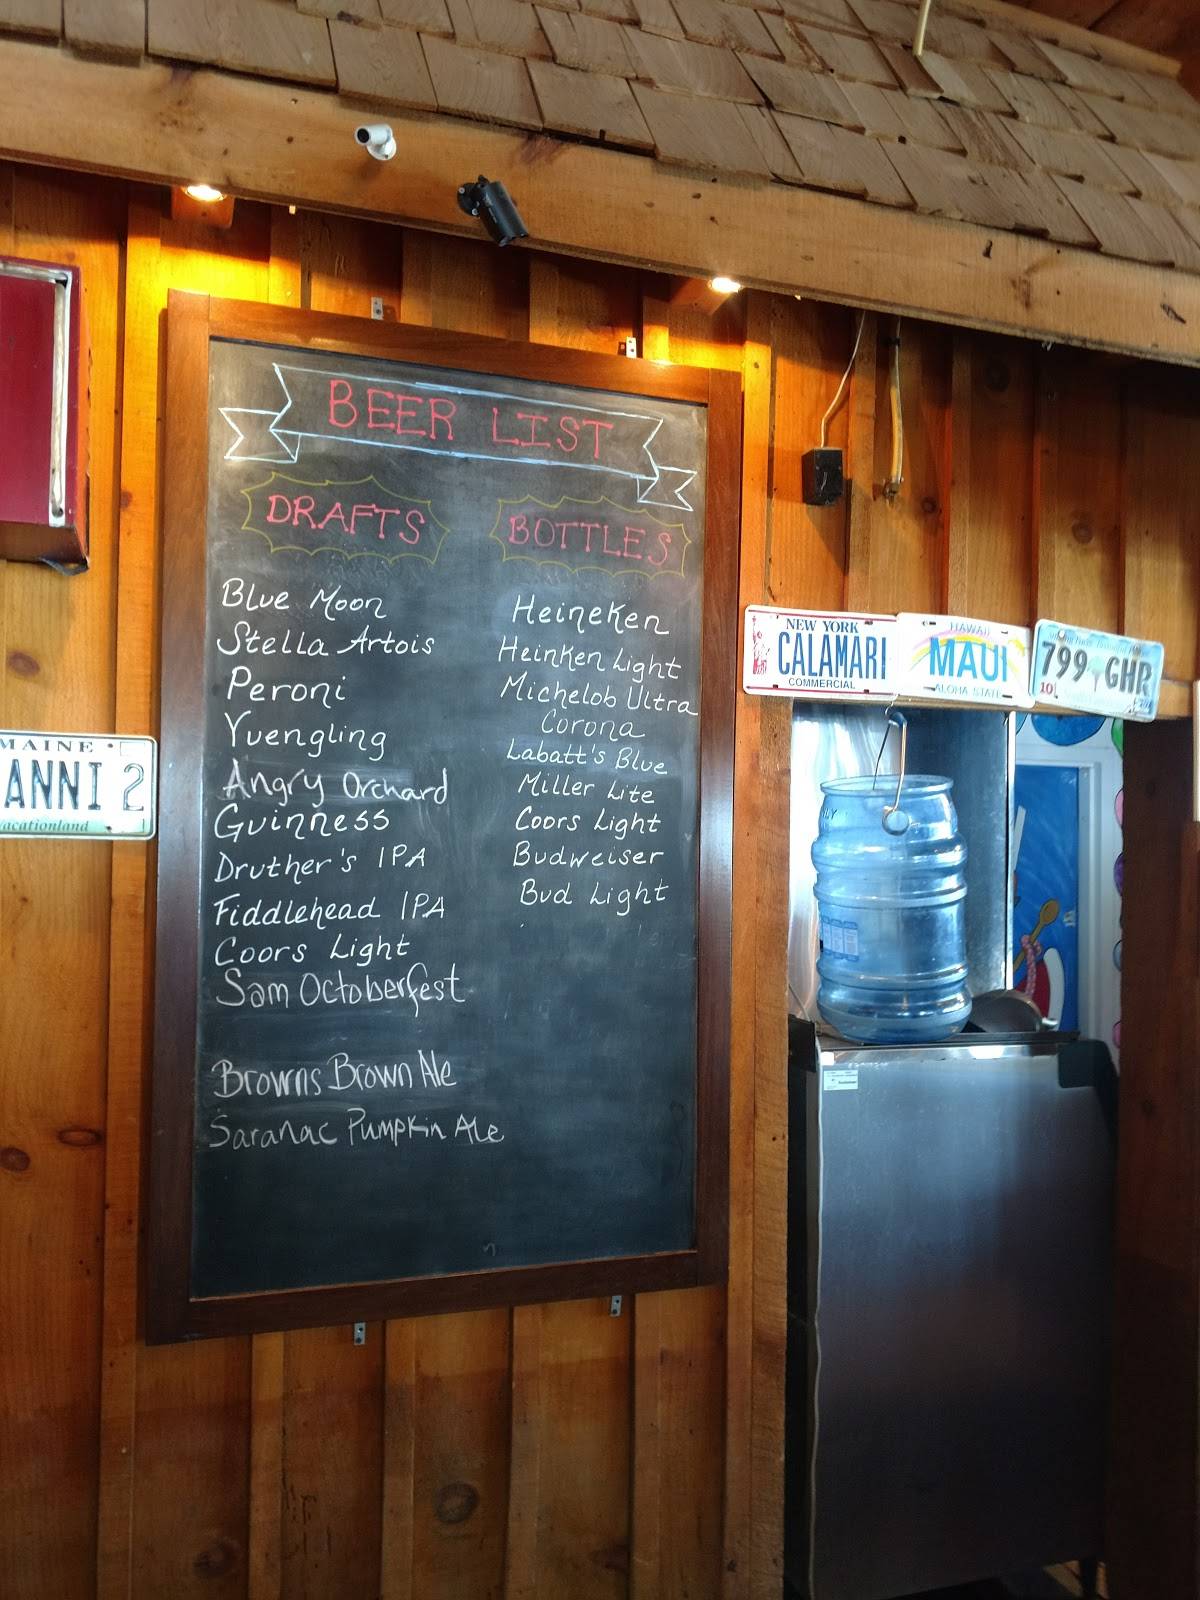 BEER LIST
DRAFTS
Blue Moon
Stella Artois
Peroni
Yuengling
Angry Orchard
Guinness
Druther's IPA
Fiddlehead IPA
Coors Light
Sam Octoberfest
Browns Brown Ale
Saranac Pumpkin Ale
BOTTLES
Heineken
Heinken Light
Michelob Ultra
Corona
Labatt's Blue
Miller Lite
Coors Light
Budweiser
Bud Light
MAINE
ANNI 2
acationland
NEW YORK
CALAMARI
COMMERCIAL
HAWAII
MAUI
ALOHA STATE
799 GHR
10